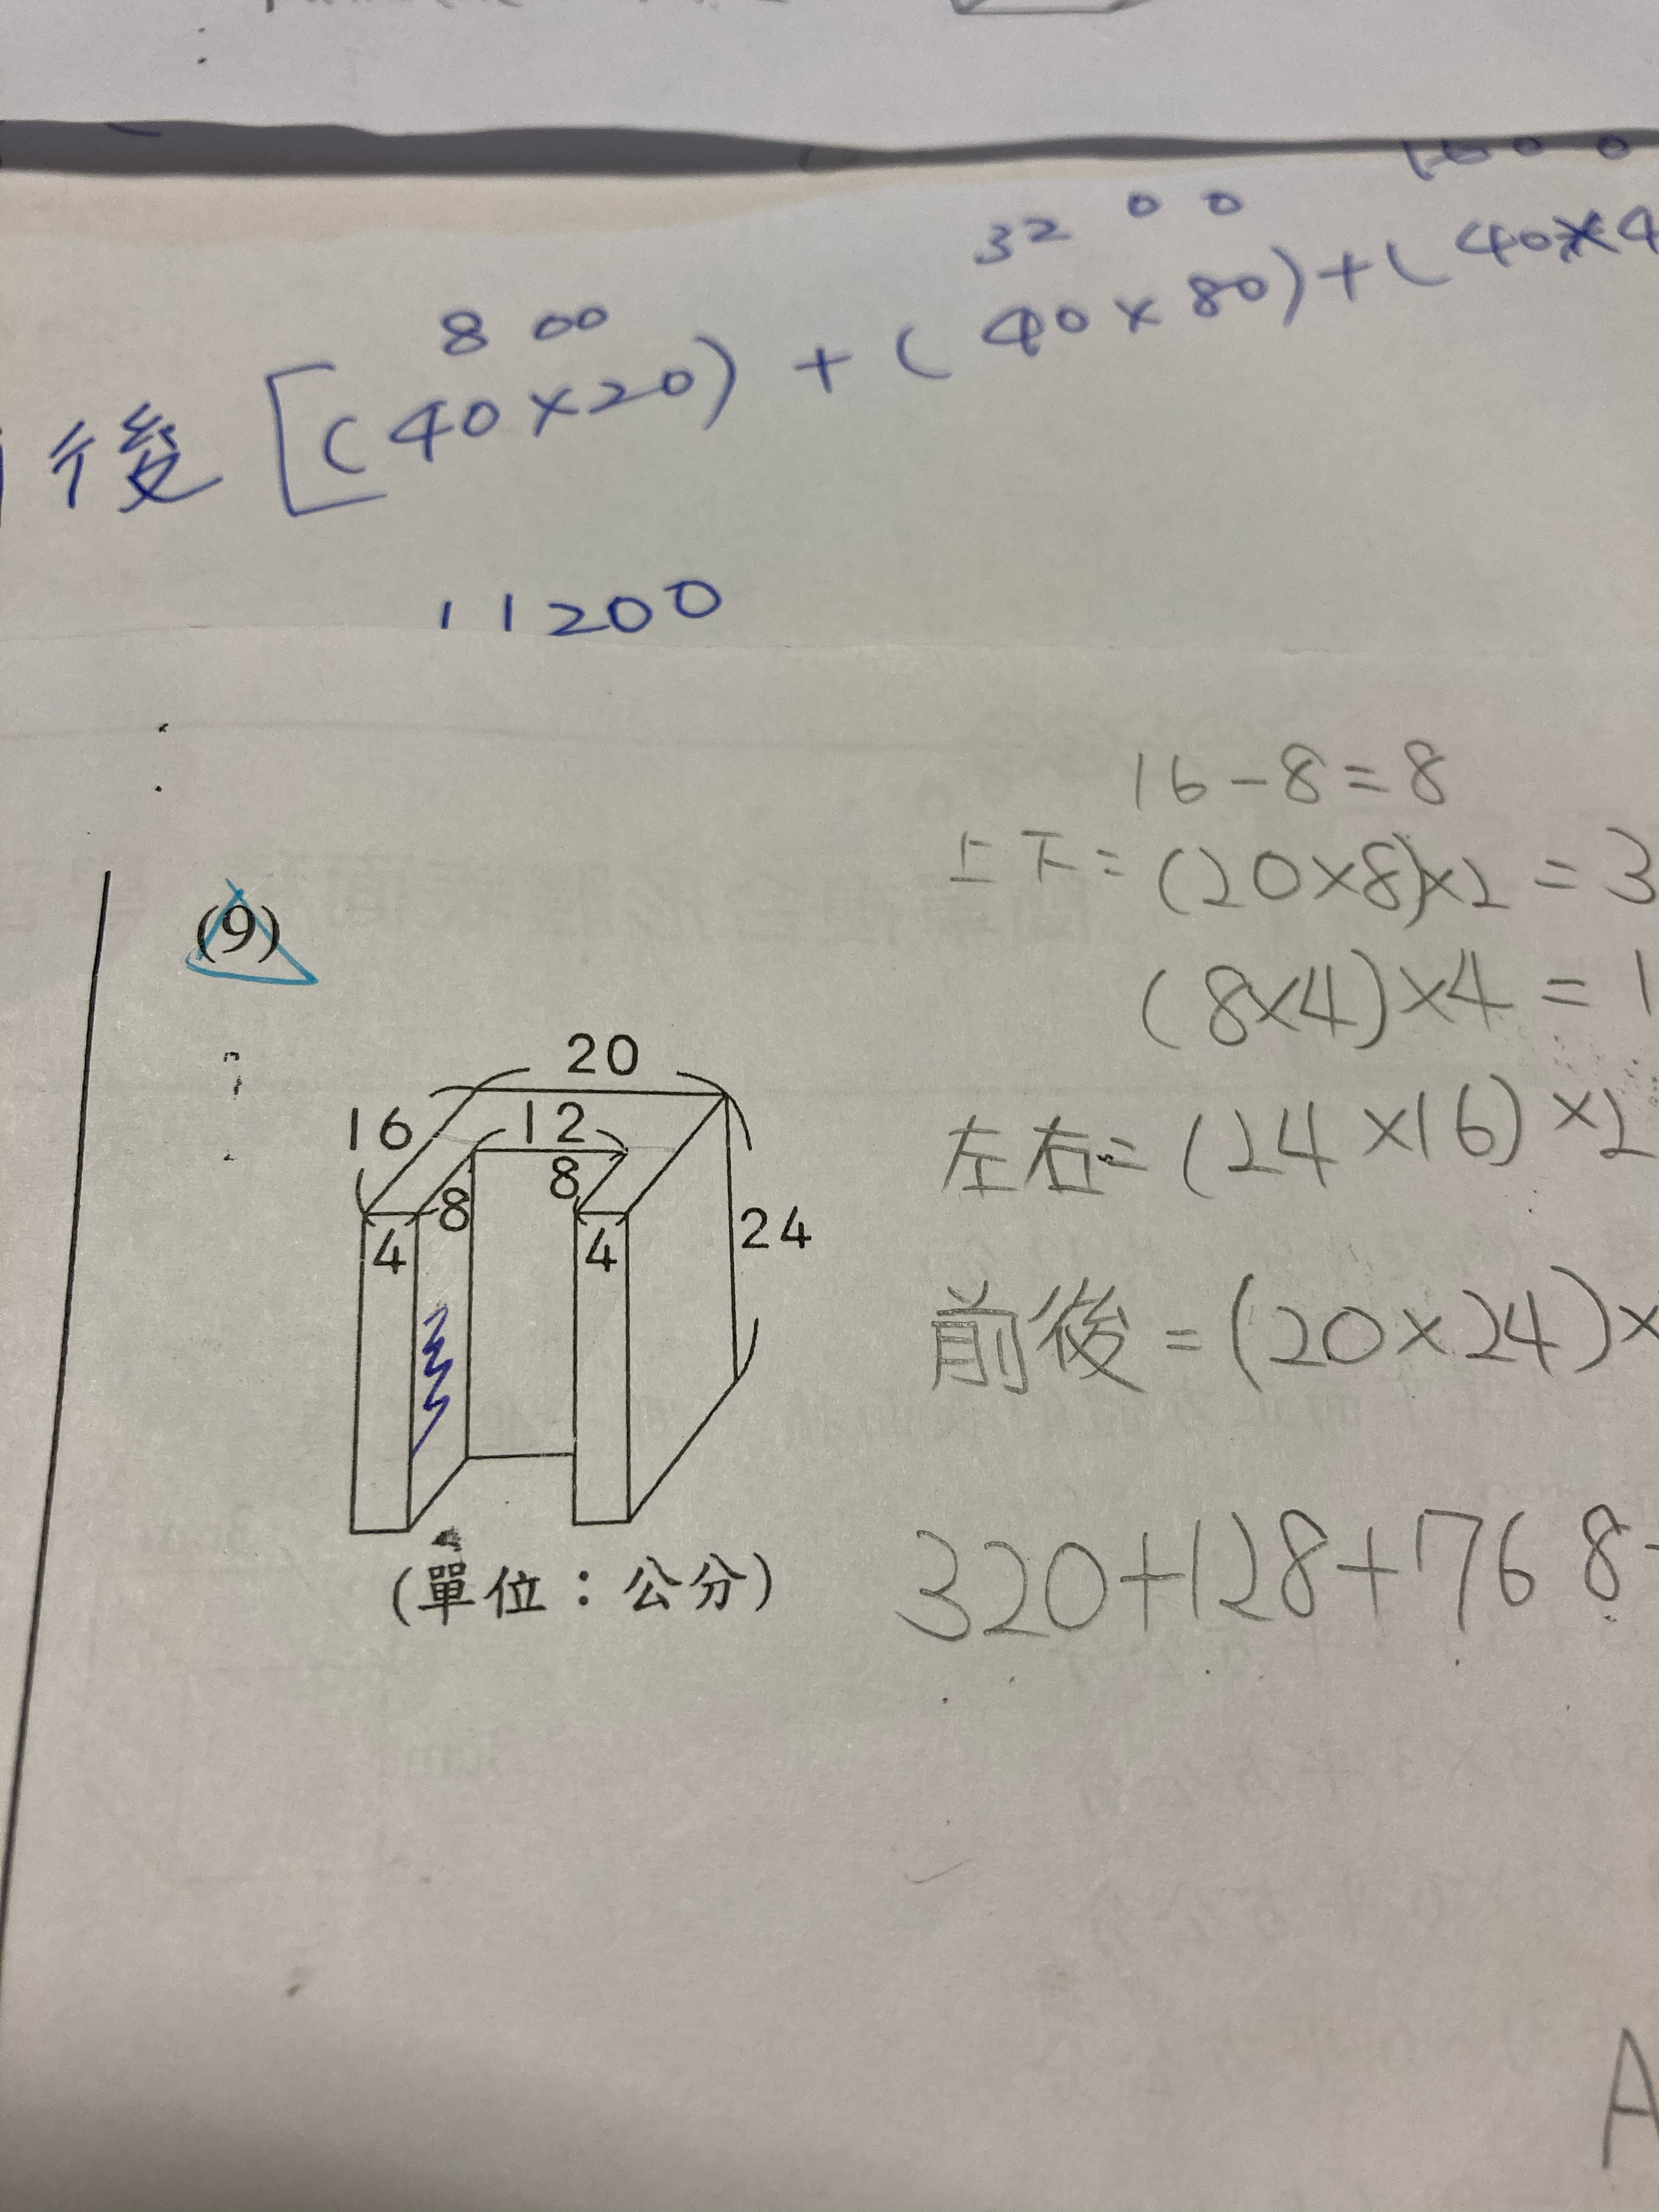 1600
3200
800
後 [(40×20) + (40×80) + (40×4
11200
16-8=8
上下=(20×8)×2=3
(9)
(8×4)×4=1
20
16
12
左右=(24×16)×2
8
8
4
4
24
前後=(20×24)×
320+128+768+
(單位：公分)
A